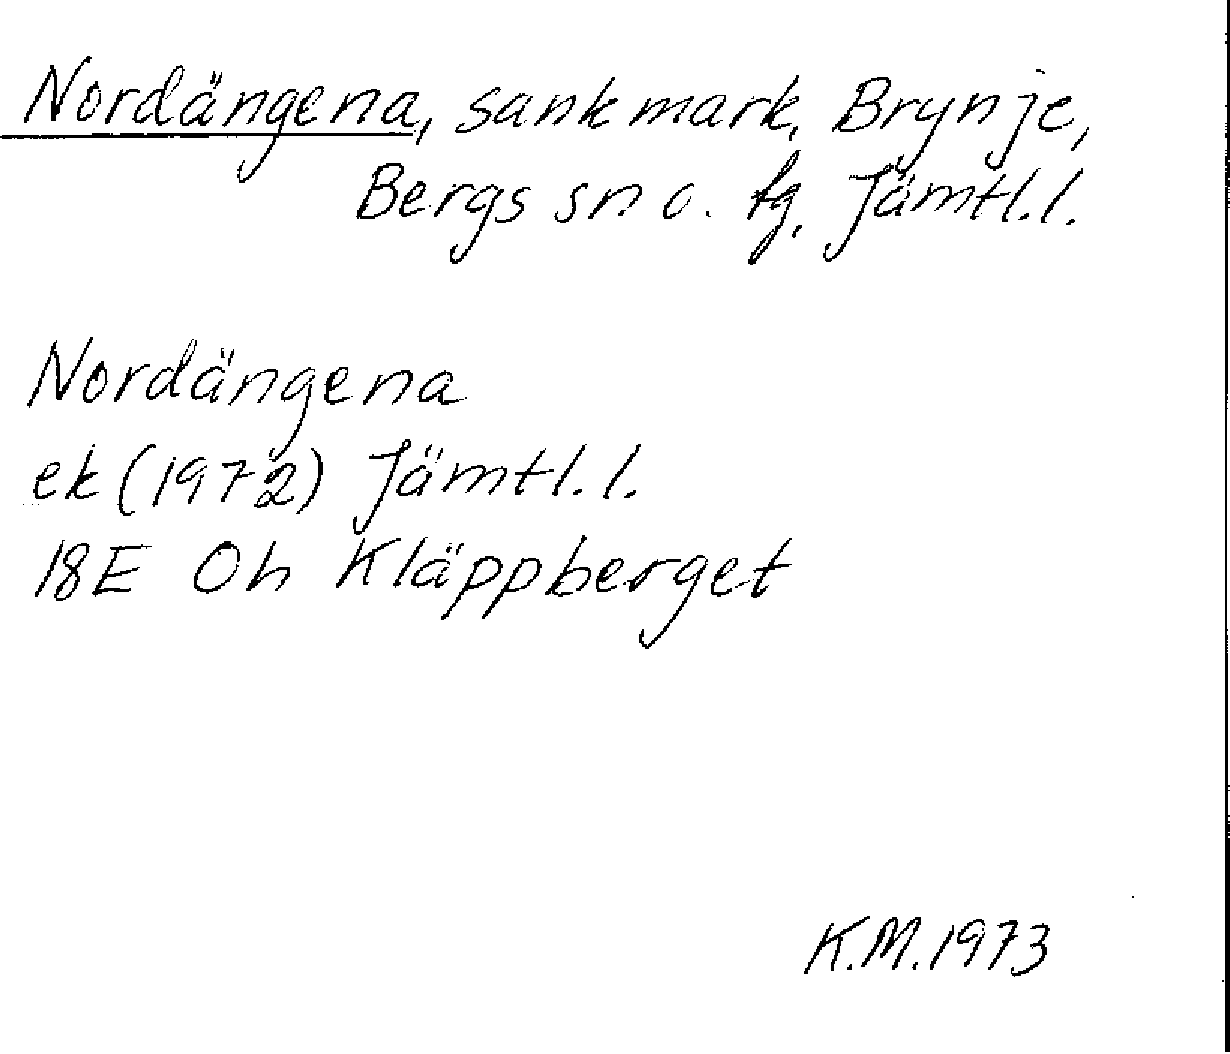 Nordängena, sankmark, Brynje,
Bergs sn o. tg, Jämtl.l.
Nordängena
ek (1972) Jämtl.l.
18E 0h Kläppberget
K.M.1973